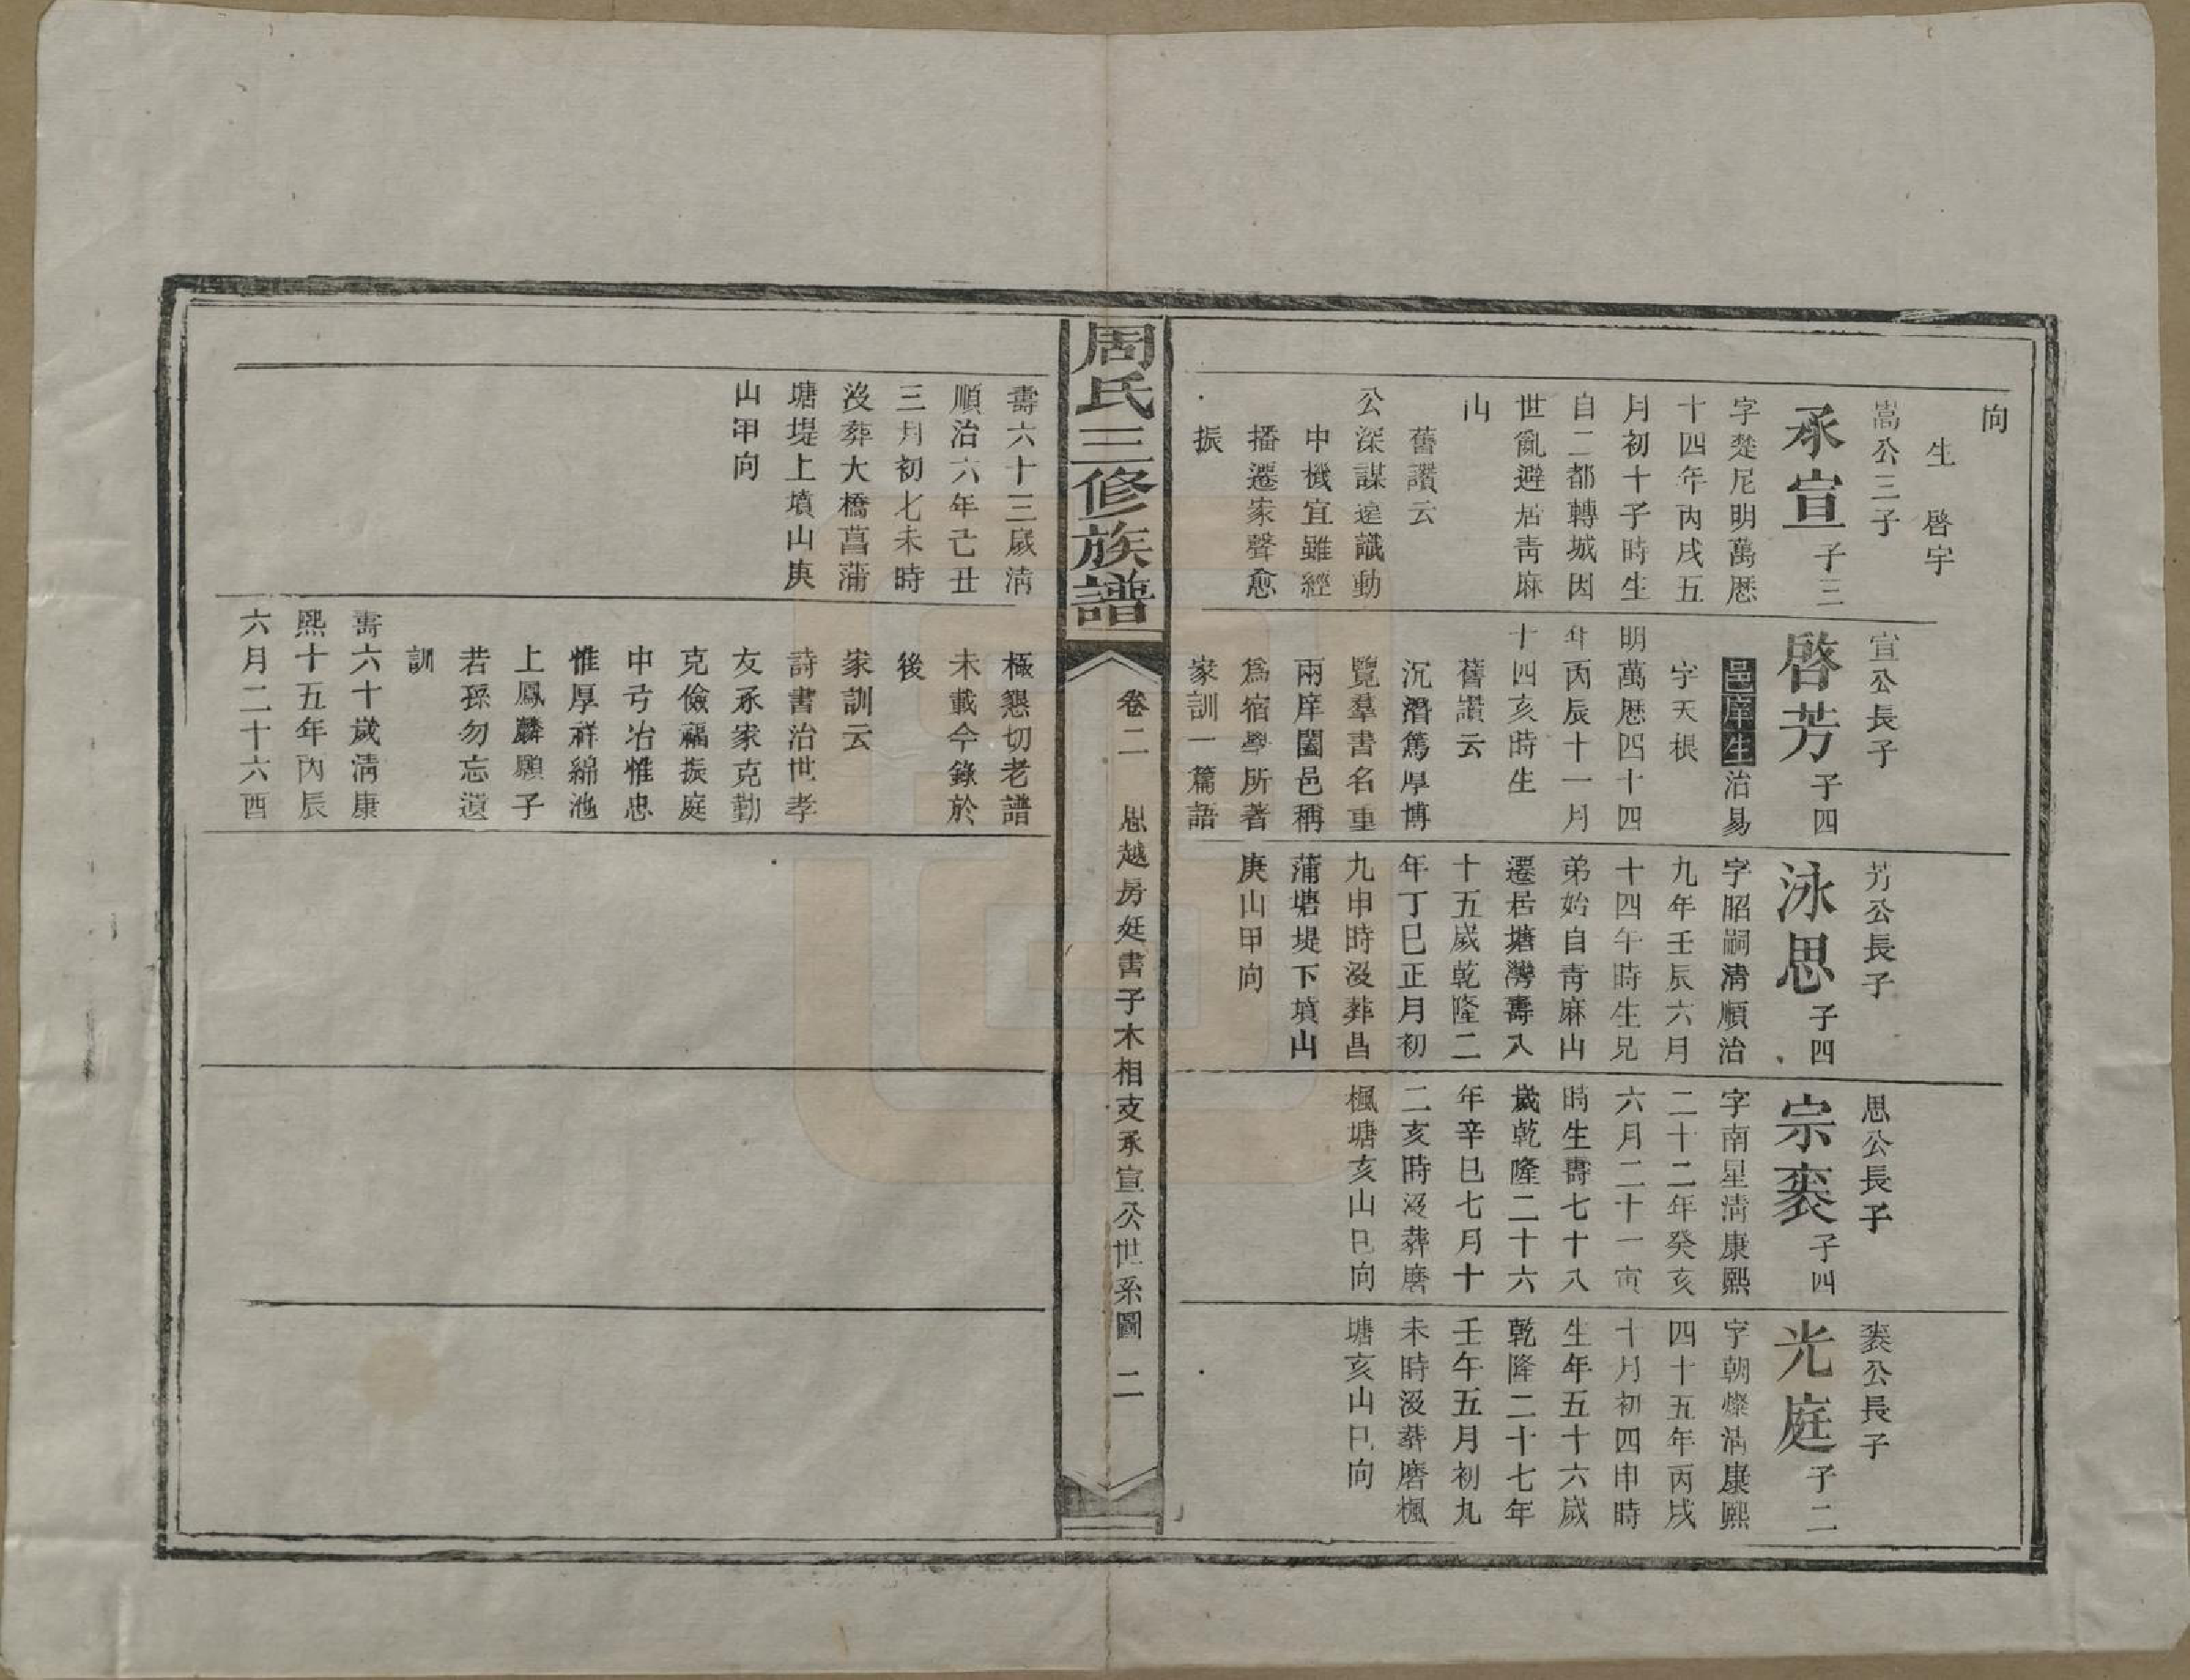 向
生　啓宇
嵩公三子
承宣子三
字楚尼明萬厯
十四年丙戌五
月初十子時生
自二都轉城因
世亂避居青麻
山
舊讃云
公深謀遠識動
中機宜雖經
播遷家聲愈
振
宣公長子
啓芳子四
邑庠生治易
字天根
明萬厯四十四
年丙辰十一月
十四亥時生
舊讃云
沉潛篤厚博
覽羣書名重
兩庠闔邑稱
爲宿學所著
家訓一篇語
芳公長子
泳思子四
字昭嗣清順治
九年壬辰六月
十四午時生兄
弟始自青麻山
遷居塘灣壽八
十五歲乾隆二
年丁巳正月初
九申時沒葬昌
蒲塘堤下墳山
庚山甲向
思公長子
宗裘子四
字南星清康熙
二十二年癸亥
六月二十一寅
時生壽七十八
歲乾隆二十六
年辛巳七月十
二亥時沒葬磨
楓塘亥山巳向
裘公長子
光庭子二
字朝燦清康熙
四十五年丙戌
十月初四申時
生年五十六歲
乾隆二十七年
壬午五月初九
未時沒葬磨楓
塘亥山巳向
周氏三修族譜
卷二　思越房廷書子木相支承宣公世系圖　二
壽六十三歲清
順治六年己丑
三月初七未時
沒葬大橋菖蒲
塘堤上墳山庚
山甲向
極懇切老譜
未載今錄於
後
家訓云
詩書治世孝
友承家克勤
克儉福振庭
中弓冶惟忠
惟厚祥綿池
上鳳麟願子
若孫勿忘遺
訓
壽六十歲清康
熙十五年丙辰
六月二十六酉